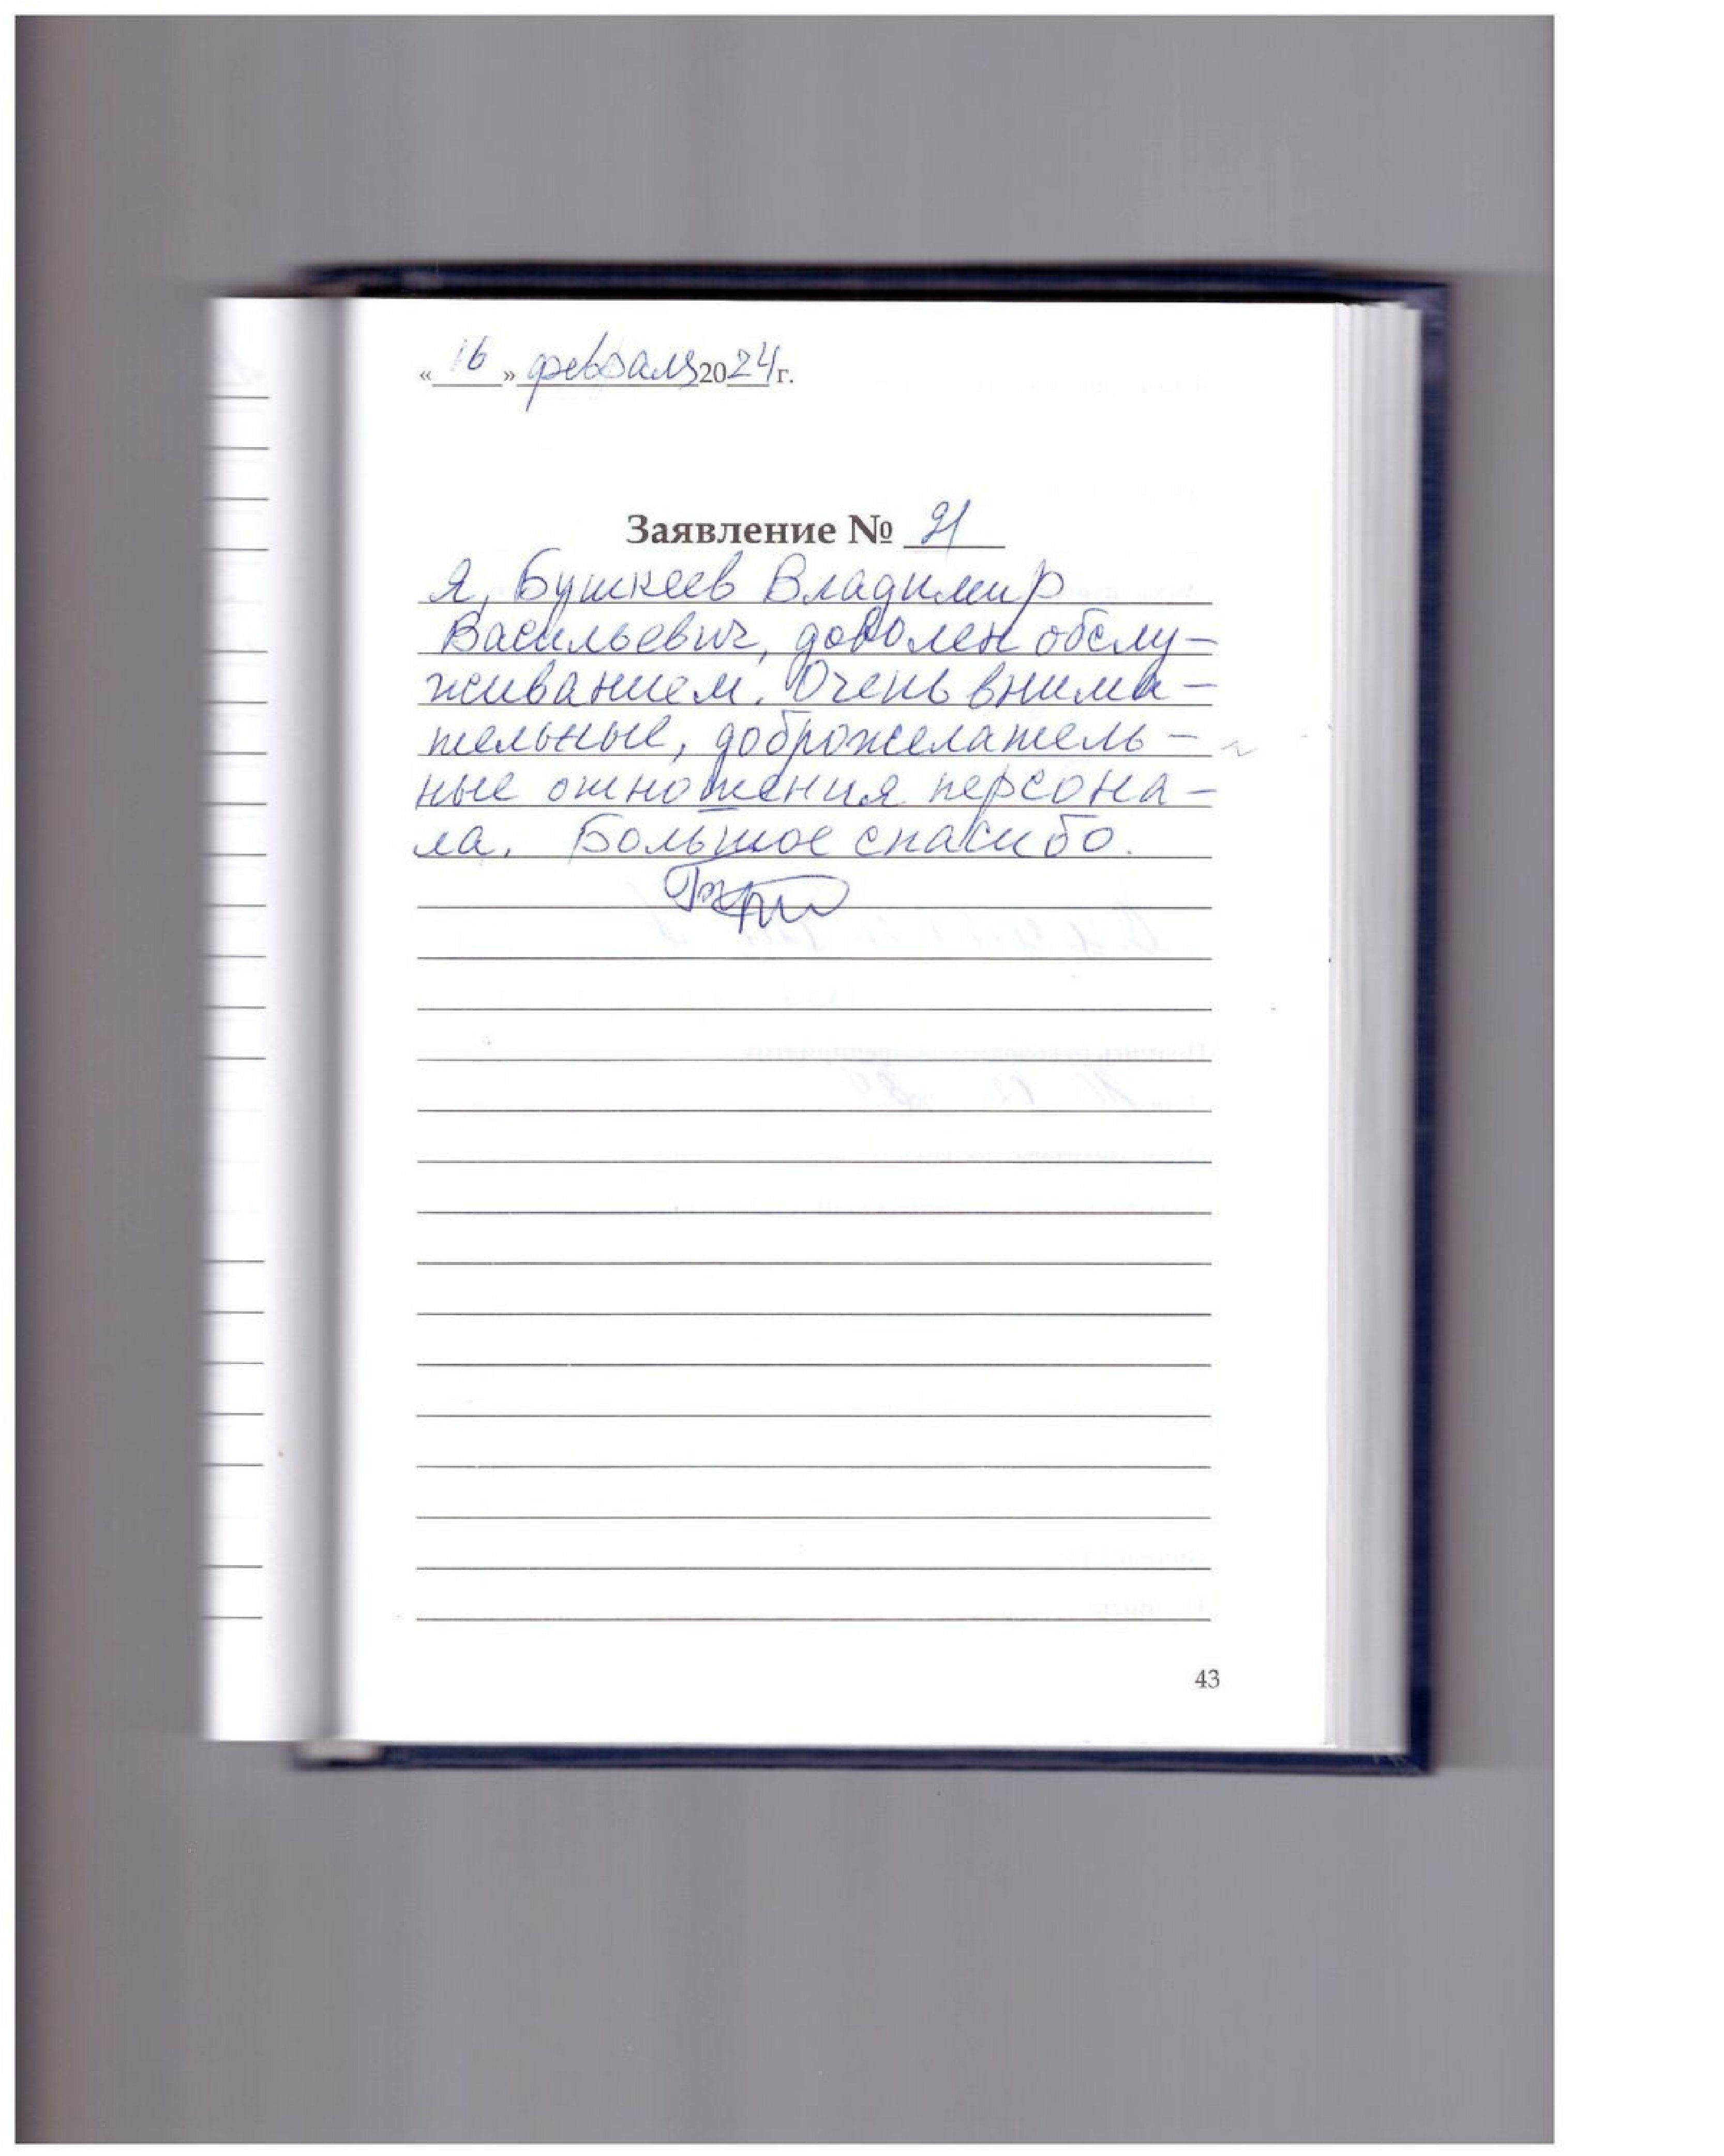 «16» февраля 2024 г.
Заявление № 21
Я, Бушкеев Владимир
Васильевич, доволен обслу-
живанием. Очень внима-
тельные, доброжелатель-
ные отношения персона-
ла. Большое спасибо.
43